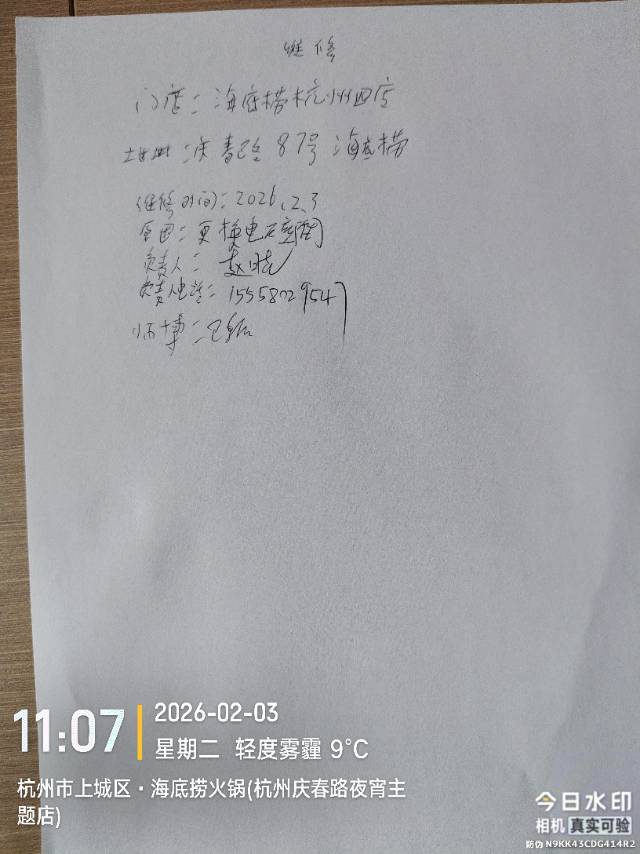 维修
门店：海底捞杭州四店
地址：庆春路87号海底捞
维修时间：2026.2.3
原因：更换电磁阀
负责人：赵晓
负责人电话：15558029547
师傅：
11:07
2026-02-03
星期二 轻度雾霾 9℃
杭州市上城区·海底捞火锅(杭州庆春路夜宵主
题店)
今日水印
相机 真实可验
防伪 N9KK43CDG414R2